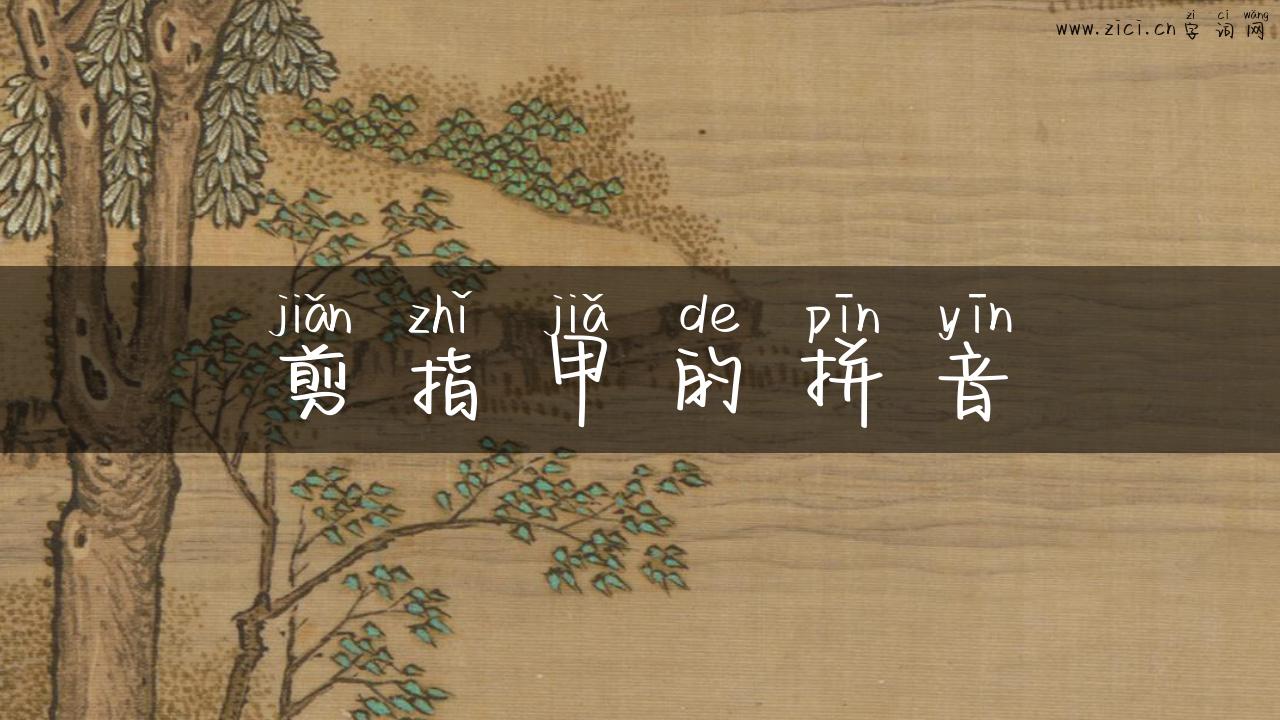 zì cí wǎng
www.zici.cn 字 词 网
jiǎn zhǐ jiǎ de pīn yīn
剪 指 甲 的 拼 音